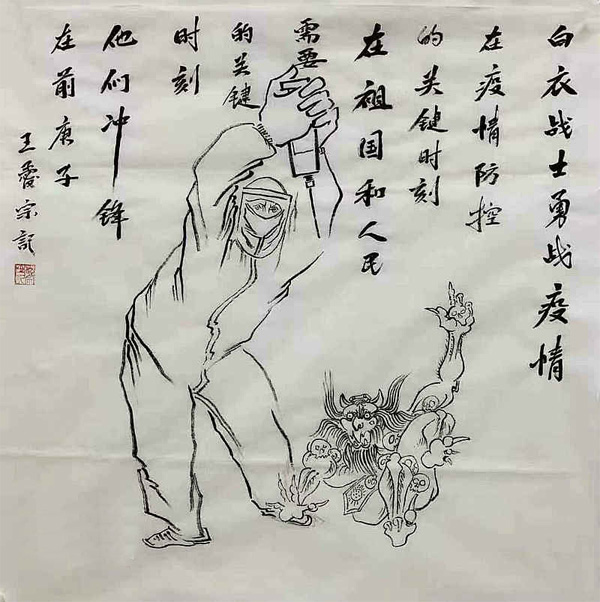 白衣战士勇战疫情
在疫情防控
的关键时刻
在祖国和人民
需要
的关键
时刻
他们冲锋
在前庚子
王 宗记